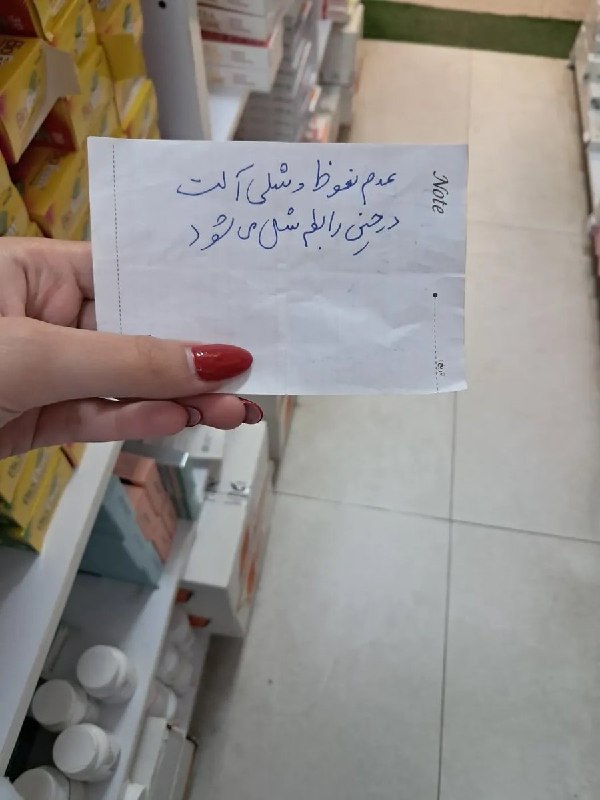 Note
عدم نعوظ و شلی آلت
در حین رابطه شل می شود